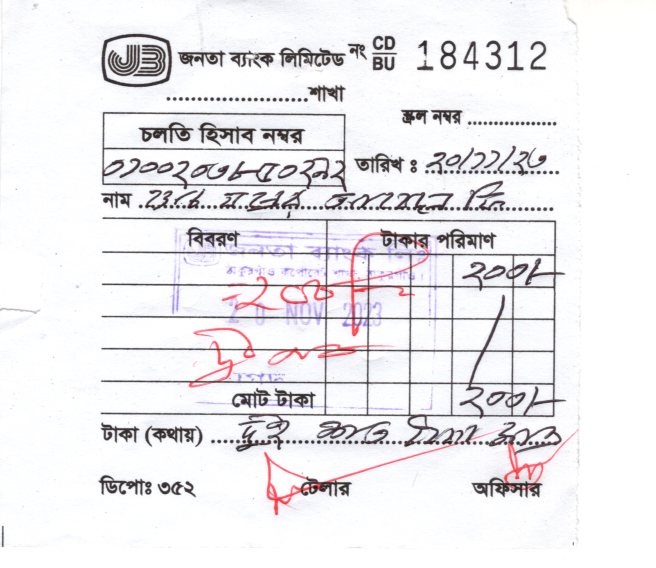 JB জনতা ব্যাংক লিমিটেড নং CD/BU 184312
....................শাখা
স্ক্রল নম্বর ................
চলতি হিসাব নম্বর
তারিখ : ২০/১১/২৩
নাম
বিবরণ টাকার পরিমাণ
জনতা ব্যাংক লিঃ
২০০/-
=২০০/=
20 NOV 2023
দুই শত
মোট টাকা ২০০/-
টাকা (কথায়) দুই শত টাকা মাত্র
ডিপোঃ ৩৫২ টেলার অফিসার